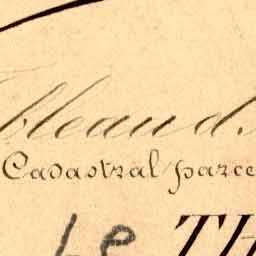 Tableau d.
Cadastral parce
Le TH